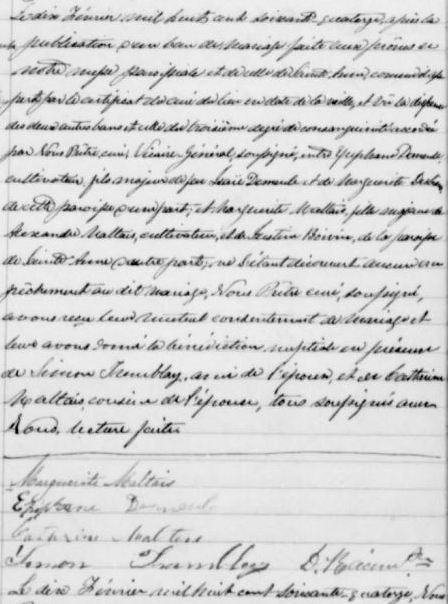 Le dix Février mil huit cent soixante-quatorze, après la
publication d'un ban de mariage faite aux prônes de
notre messe paroissiale et de celle de Sainte Anne comme il
par le certificat du curé du lieu en date de la veille, et vu la dispense
des deux autres bans et celle du troisième degré de consanguinité accordée
par Nous Prêtre, curé, Vicaire-Général, soussigné, entre Epiphane Demeule
cultivateur, fils majeur de feu Demeule et de Marguerite
de cette paroisse d'une part; et Marguerite Maltais, fille majeure de
Alexandre Maltais, cultivateur, et de Justine Boivin, de la paroisse
de Sainte Anne d'autre part; ne s'étant découvert aucun em
pêchement au dit mariage, Nous Prêtre curé, soussigné,
avons reçu leur mutuel consentement de mariage et
leur avons donné la bénédiction nuptiale en présence
de Simon Tremblay, ami de l'époux, et de Catherine
Maltais, cousine de l'épouse, tous soussignés avec
Nous, lecture faite
Marguerite Maltais
Epiphane Demeule
Catherine Maltais
Simon Tremblay D. Racine Ptre
Le dix Février mil huit cent soixante-quatorze, Nous